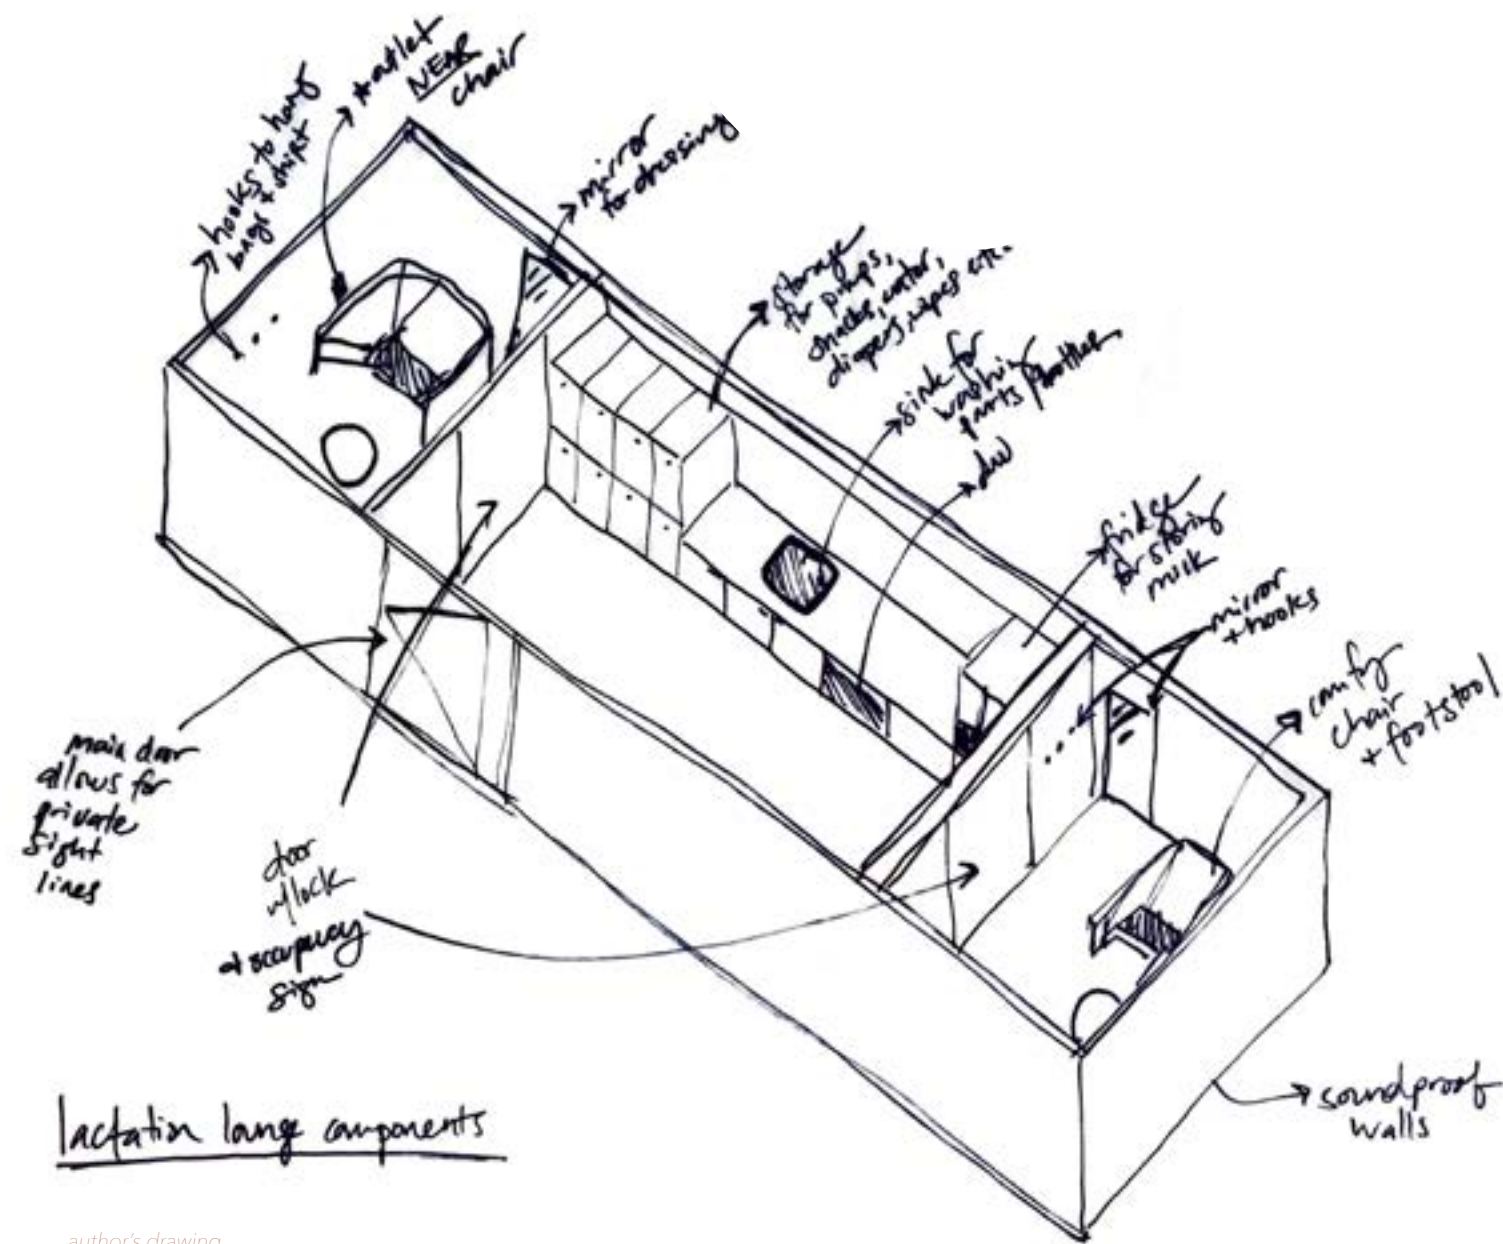 * outlet
NEAR
chair
hooks to hang
bags + shirt
mirror
for dressing
storage
for pumps,
snacks, water,
diapers, wipes etc.
sink for
washing
parts/bottles
dw
fridge
for storing
milk
mirror
+ hooks
comfy
chair
+ footstool
main door
allows for
private
sight
lines
door
w/lock
+ occupancy
sign
soundproof
walls
lactation lounge components
author's drawing